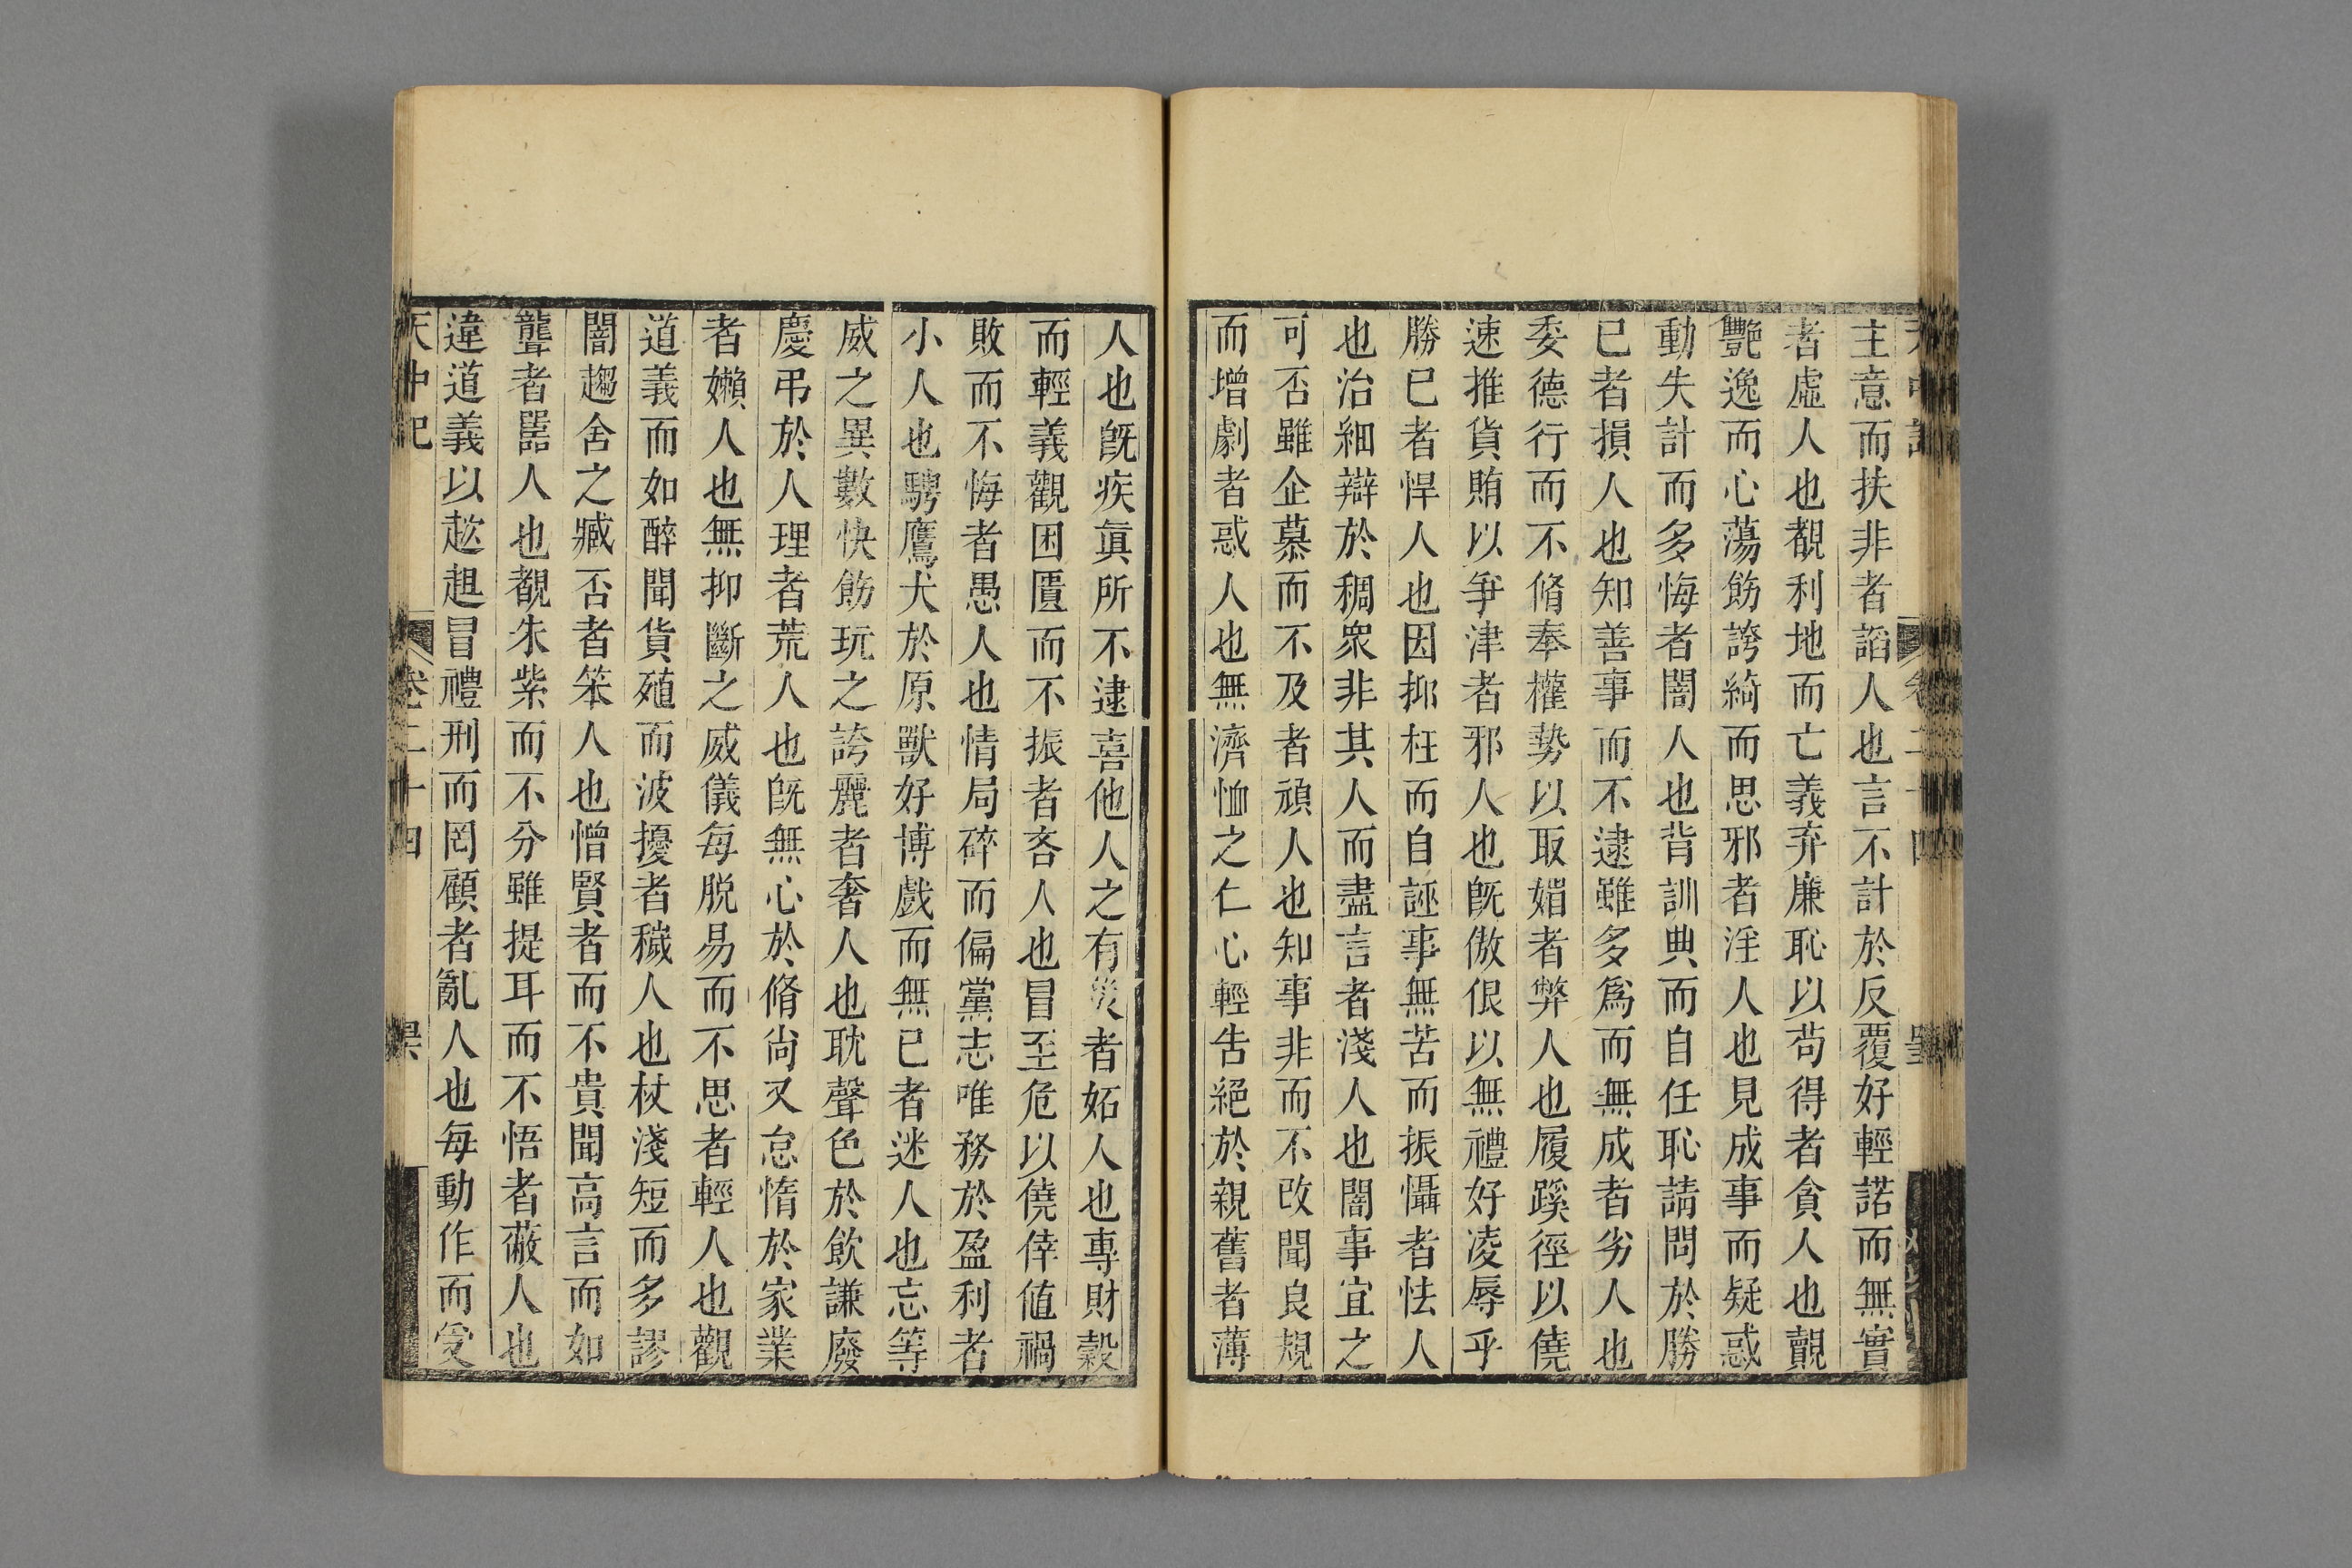 主意而扶非者謟人也言不計於反覆好輕諾而無實
者虛人也覩利地而亡義弃廉恥以苟得者貪人也覿
艷逸而心蕩飭誇綺而思邪者淫人也見成事而疑惑
動失計而多悔者闇人也背訓典而自任恥請問於勝
已者損人也知善事而不逮雖多爲而無成者劣人也
委德行而不脩奉權勢以取媚者弊人也履蹊徑以僥
速推貨賄以爭津者邪人也旣傲佷以無禮好凌辱乎
勝已者悍人也因抑枉而自誣事無苦而振懾者怯人
也治細辯於稠衆非其人而盡言者淺人也闇事宜之
可否雖企慕而不及者頑人也知事非而不改聞良規
而增劇者惑人也無濟恤之仁心輕告絕於親舊者薄
人也旣疾眞所不逮喜他人之有災者妬人也専財穀
而輕義觀困匱而不振者吝人也冒至危以僥倖値禍
敗而不悔者愚人也情局碎而偏黨志唯務於盈利者
小人也騁鷹犬於原獸好博戲而無已者迷人也忘等
威之異數快飭玩之誇麗者奢人也耽聲色於飲謙廢
慶弔於人理者荒人也旣無心於脩尙又怠惰於家業
者嬾人也無抑斷之威儀每脱易而不思者輕人也觀
道義而如醉聞貨殖而波擾者穢人也杖淺短而多謬
闇趨舍之臧否者笨人也憎賢者而不貴聞高言而如
聾者嚚人也覩朱紫而不分雖提耳而不悟者蔽人也
違道義以趑趄冒禮刑而罔顧者亂人也每動作而受
天中記 卷二十四